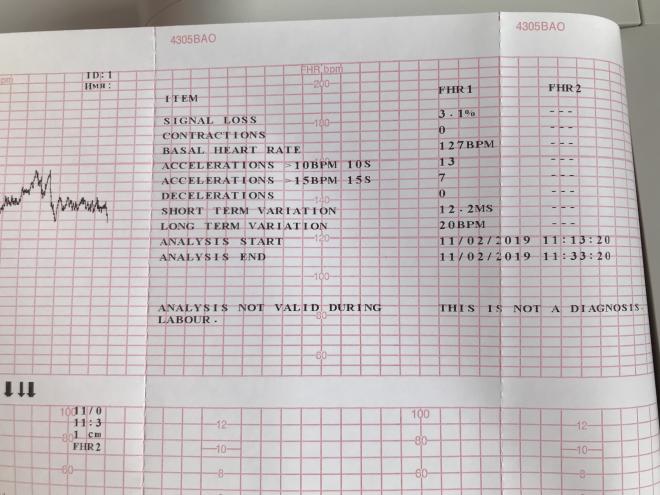 4305BAO
4305BAO
ID:1
Имя:
FHR bpm
200
ITEM FHR1 FHR2
SIGNAL LOSS 3.1% ---
CONTRACTIONS 0 ---
BASAL HEART RATE 127BPM ---
ACCELERATIONS >10BPM 10S 13 ---
ACCELERATIONS >15BPM 15S 7 ---
DECELERATIONS 0 ---
SHORT TERM VARIATION 12.2MS ---
LONG TERM VARIATION 20BPM ---
ANALYSIS START 11/02/2019 11:13:20
ANALYSIS END 11/02/2019 11:33:20
100
ANALYSIS NOT VALID DURING THIS IS NOT A DIAGNOSIS.
LABOUR.
80
60
100 11/0
11:3
80 1 cm
FHR2
60
12
10
8
100
80
60
12
10
8